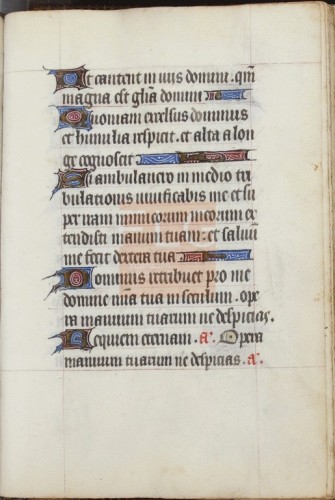 Et cantent in viis domini. qm
magna est glia domini
Quoniam excelsus dominus
et humilia respicit. et alta a lon
ge cognoscit
Si ambulavero in medio tri
bulationis vivificabis me et su
per iram inimicorum meorum ex
tendisti manum tuam. et salvu
me fecit dextera tua
Dominus retribuet pro me
domine mia tua in seculum. ope
ra manuum tuarum ne despicias.
Requiem eternam. a. Opera
manuum tuarum ne despicias. a.